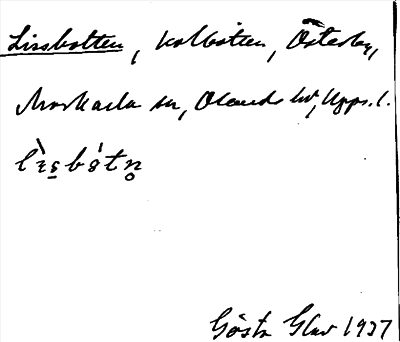 Lissbotten, kolbotten, Österby,
Morkarla sn, Olands hd, Upps. l.
lìsbótn̥
Gösta Glav 1937